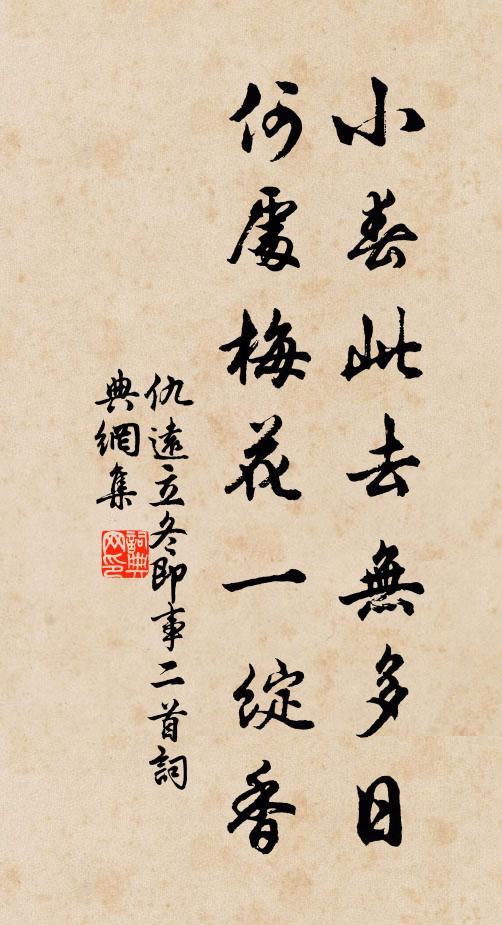 小春此去無多日
何處梅花一綻香
仇遠立冬即事二首詞
典網集
詞典
网印